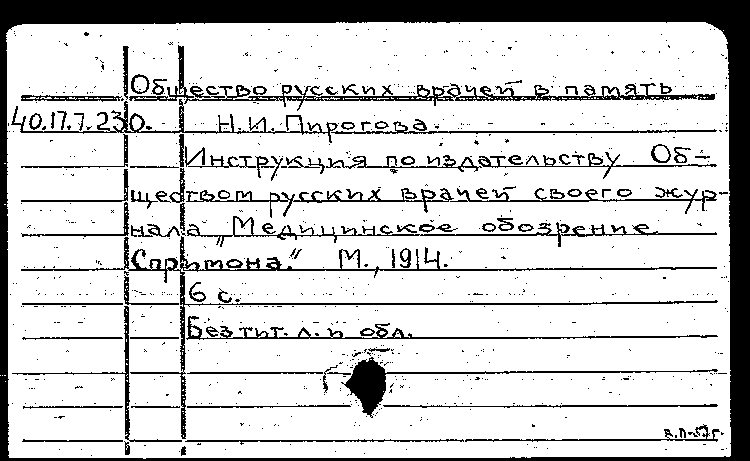 Общество русских врачей в память
40.17.7.230. Н.И. Пирогова.
Инструкция по издательству Об-
ществом русских врачей своего жур-
нала „Медицинское обозрение
Спримона." М., 1914.
6 с.
Без тит. л. и обл.